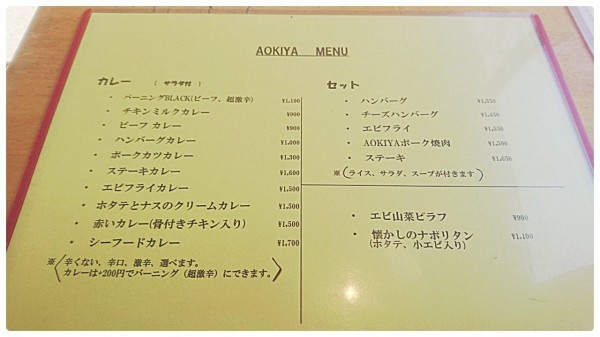 AOKIYA MENU
カレー （ サラダ付 ）
・ バーニングBLACK(ビーフ、超激辛) ¥1,100
・ チキンミルクカレー ¥900
・ ビーフ カレー ¥900
・ ハンバーグカレー ¥1,000
・ ポークカツカレー ¥1,300
・ ステーキカレー ¥1,600
・ エビフライカレー ¥1,500
・ ホタテとナスのクリームカレー ¥1,500
・ 赤いカレー(骨付きチキン入り) ¥1,500
・ シーフードカレー ¥1,700
※ 辛くない、辛口、激辛、選べます。
カレーは+200円でバーニング（超激辛）にできます。
セット
・ ハンバーグ
・ チーズハンバーグ
・ エビフライ
・ AOKIYAポーク焼肉
・ ステーキ
※（ライス、サラダ、スープが付きます）
・ エビ山菜ピラフ ¥900
・ 懐かしのナポリタン ¥1,100
(ホタテ、小エビ入り)